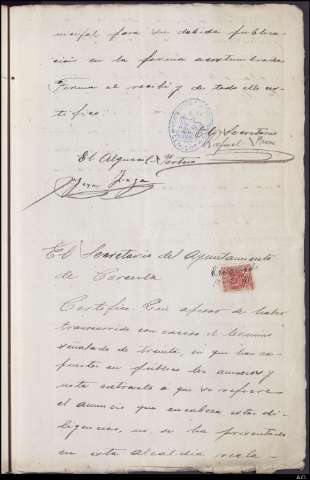 nicipal para su debida publica-
ción en la forma acostumbrada
Firma el recibí y de todo ello cer-
tifico.
El Secretario
Rafael
El Alguacil Portero
El Secretario del Ayuntamiento
de
Certifico: Que apesar de haber
transcurrido con exceso el término
señalado de treinta, en que han es-
puesto en público los anuncios y
esta estracto á que se refiere
el anuncio que encabeza estas di-
ligencias, no se ha presentado
en esta alcaldia recla-